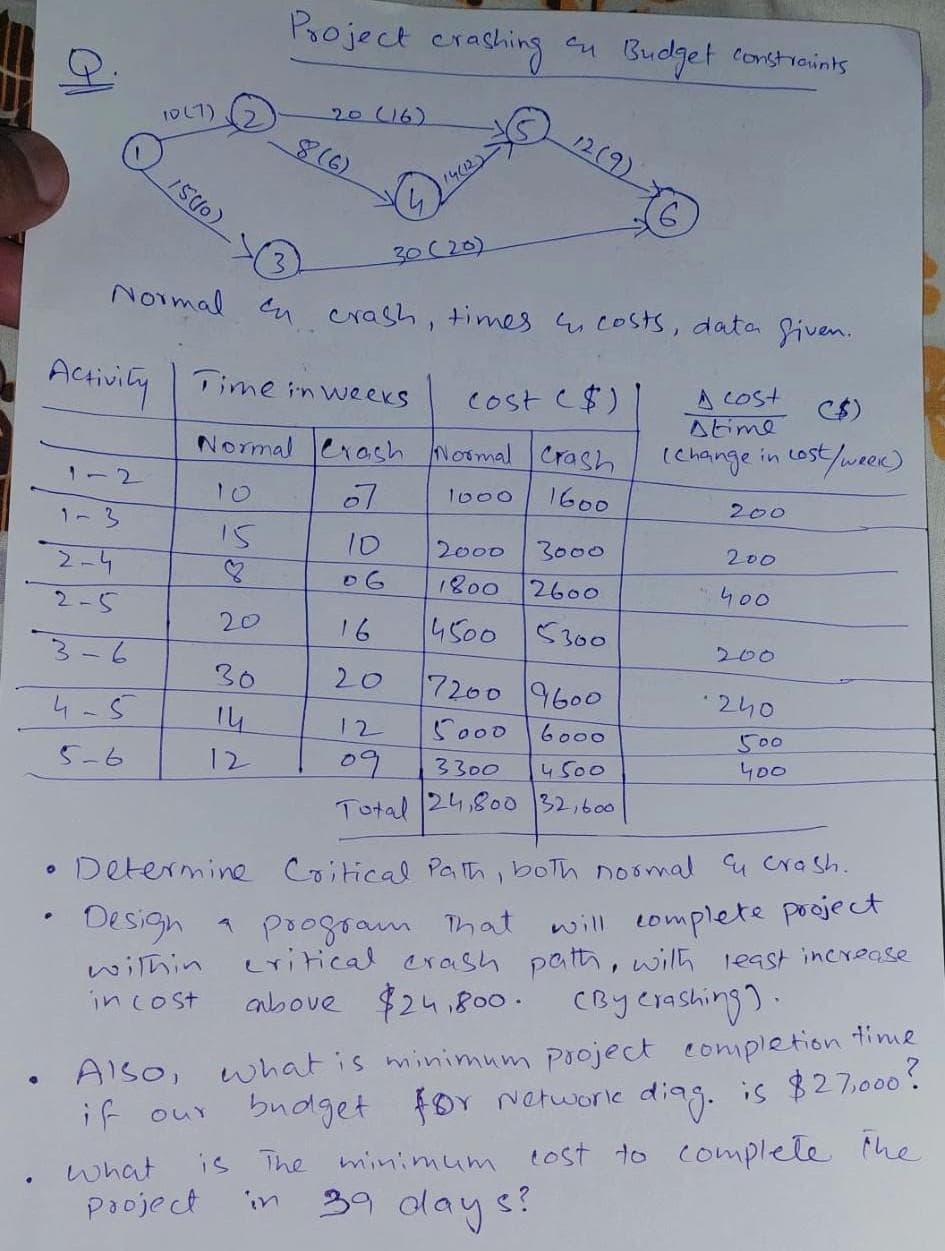 Project crashing & Budget constraints
Q.
10(7) 2 20 (16) 5 12(9)
1 8(6) 14(12)
15(10) 4 6
3 30 (20)
Normal & crash, times & costs, data given.
Activity Time in weeks cost ($) Δ cost / Δ time ($)
Normal Crash Normal Crash (change in cost/week)
1-2 10 07 1000 1600 200
1-3 15 10 2000 3000 200
2-4 8 06 1800 2600 400
2-5 20 16 4500 5300 200
3-6 30 20 7200 9600 240
4-5 14 12 5000 6000 500
5-6 12 09 3300 4500 400
Total 24,800 32,600
• Determine Critical Path, both normal & crash.
• Design a program that will complete project
within critical crash path, with least increase
in cost above $24,800. (By crashing).
• Also, what is minimum project completion time
if our budget for Network diag. is $27,000?
• what is The minimum cost to complete The
project in 39 days?